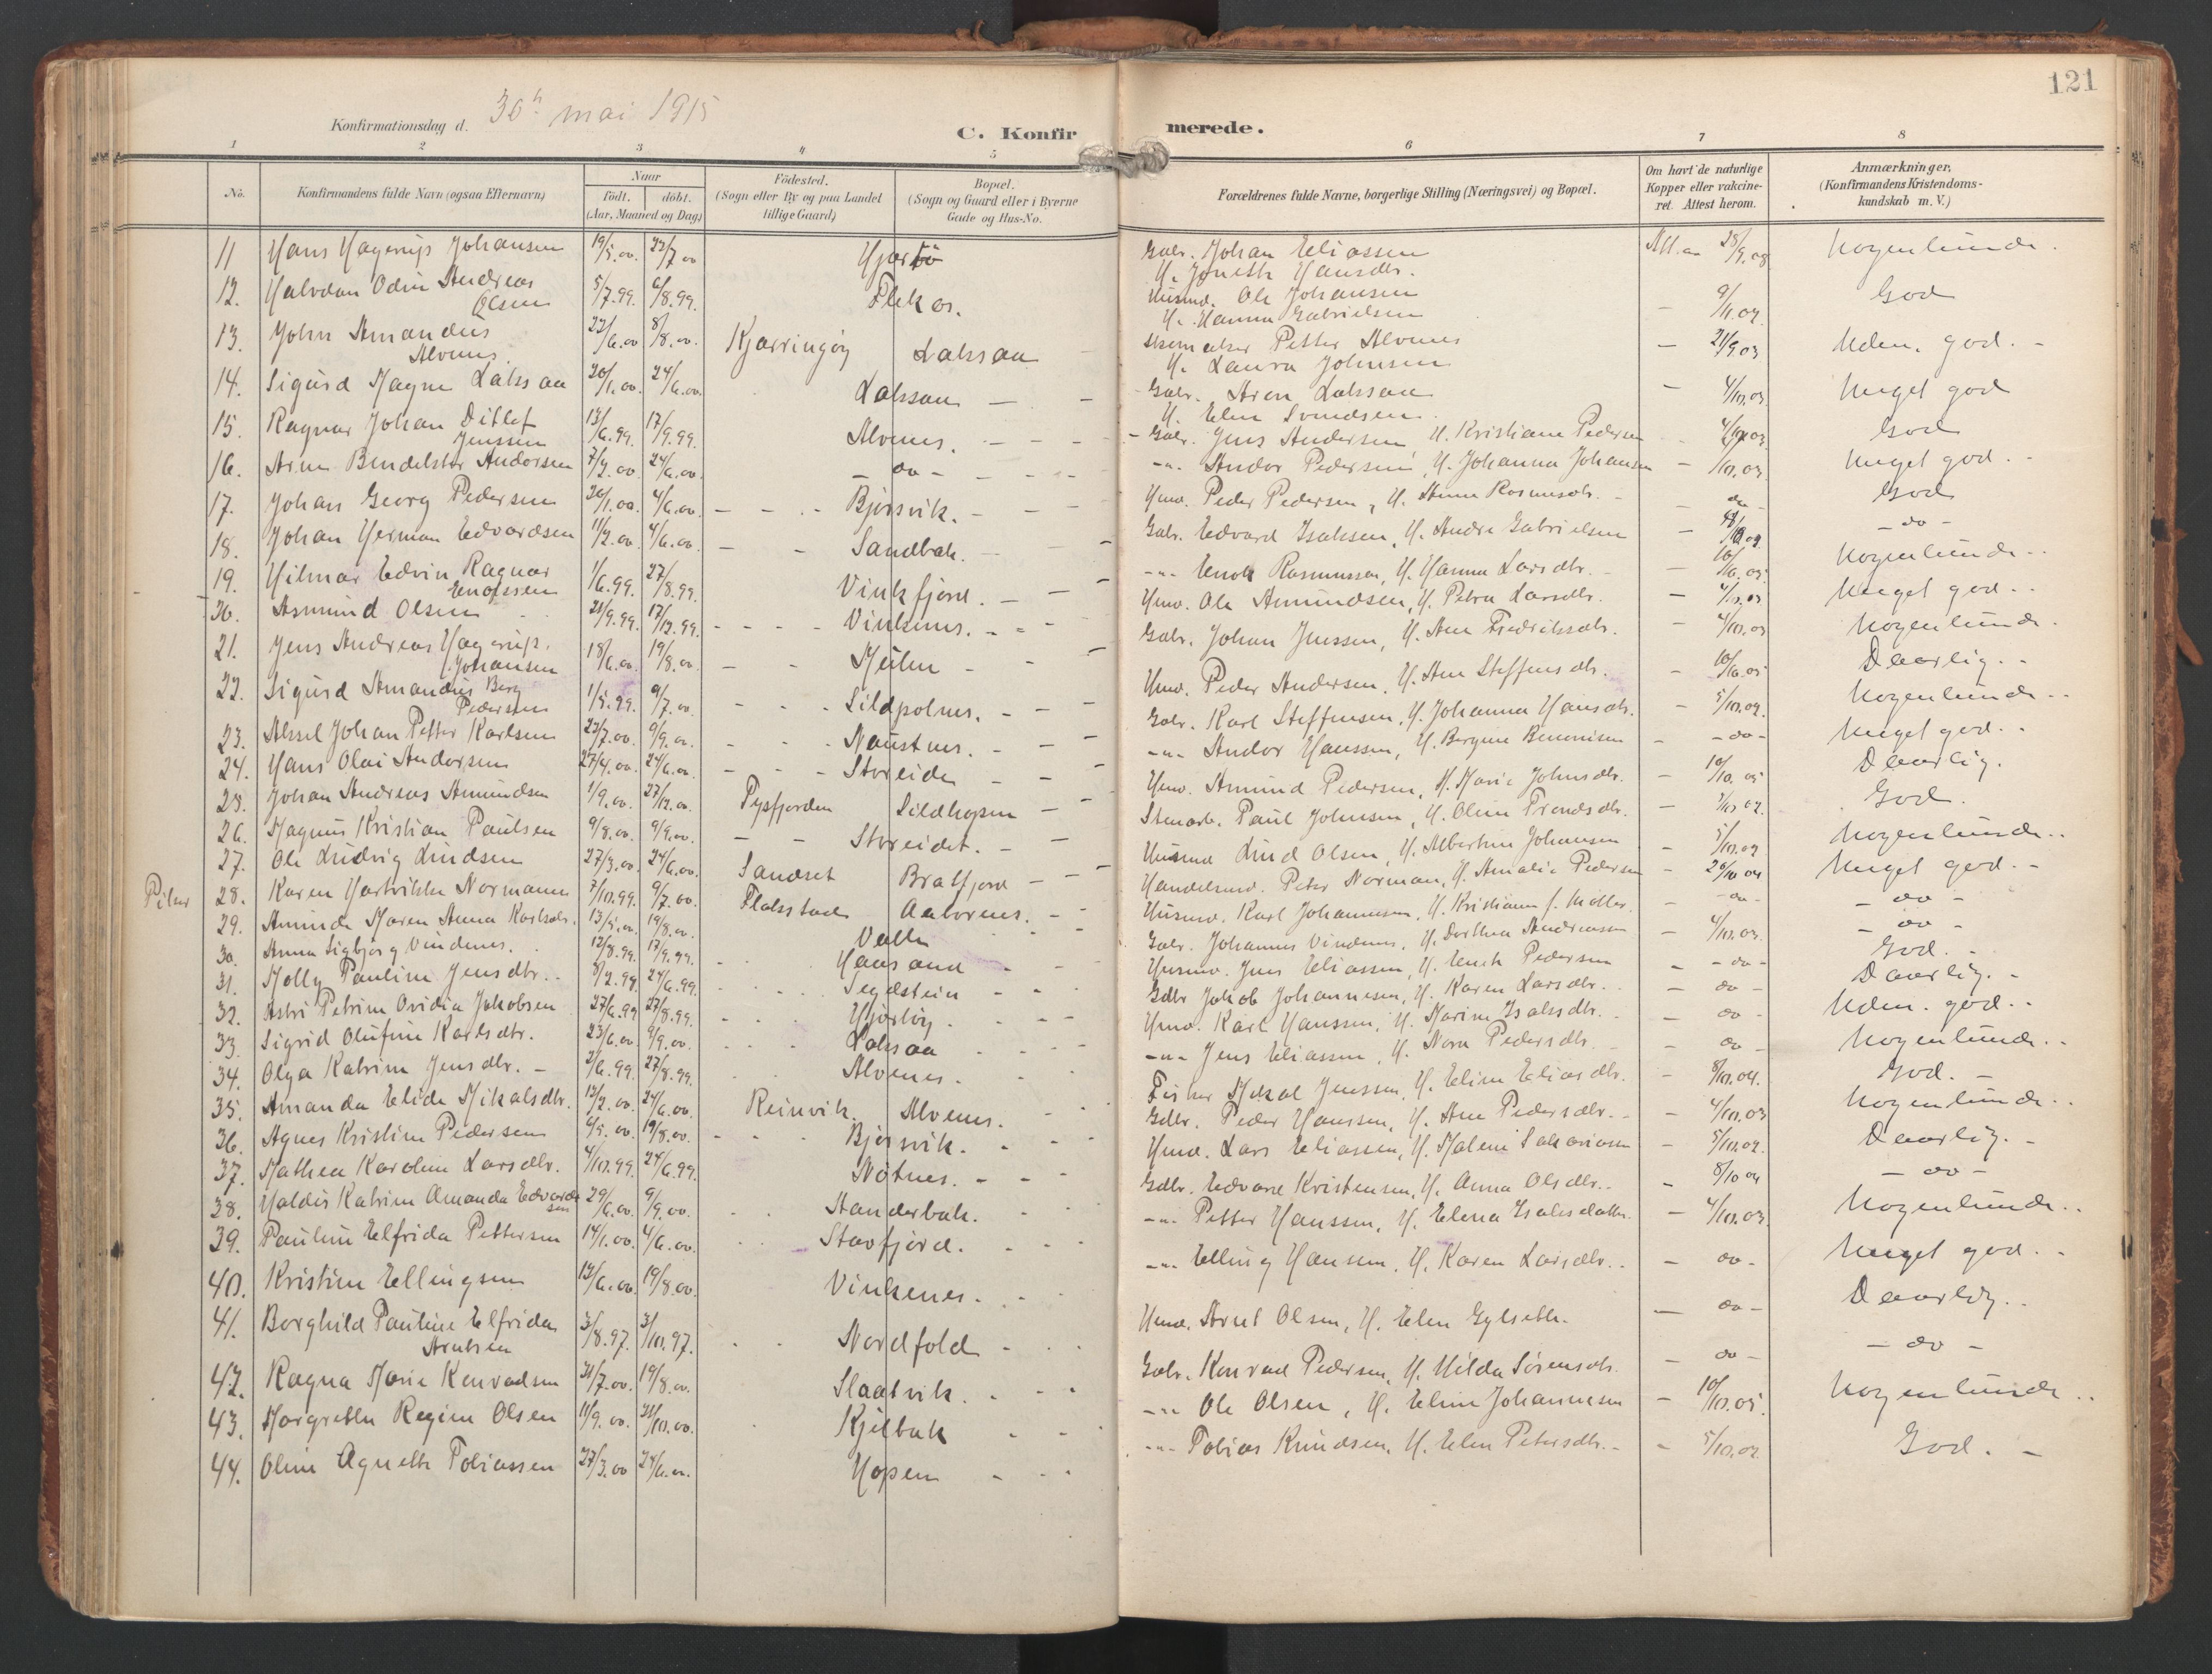 121
Konfirmationsdag d. 30te mai 1915
C. Konfirmerede.
1 2 3 4 5 6 7 8
No. Konfirmandens fulde Navn (ogsaa Efternavn) Naar født. døbt. (Aar, Maaned og Dag) Fødested. (Sogn eller By og paa Landet tillige Gaard) Bopæl. (Sogn og Gaard eller i Byerne Gade og Hus-No. Forældrenes fulde Navne, borgerlige Stilling (Næringsvei) og Bopæl. Om havt de naturlige Kopper eller vakcineret. Attest herom. Anmærkninger. (Konfirmandens Kristendomskundskab m. V.)
11 Hans Hagerup Johansen 19/5.00. 22/7 00 Hjartö Gbr. Johan Eliassen H. Joneth Hansdtr. Att. an 28/9.08 Nogenlunde.
12. Halvdan Odin Andreas Olsen 5/7.99. 6/8.99. Flekos. Husmd. Ole Johansen H. Hanna Gabrielsen God
13. John Amandus Alvenes. 22/6.00 8/8.00. Kjærringøy Laksaa Skomaker Petter Alvenes H. Laura Johnsen - 21/9.03 Uden. god. -
14. Sigurd Magne Laksaa 20/1.00. 24/6.00. Laksaa - Gbr. Aron Laksaa H. Elen Svendsen - 4/10.03. Meget god
15. Ragnar Johan Ditlef Jenssen 13/6.99. 17/9.99. Alvenes. - Gbr. Jens Andersen H. Kristiane Pedersen God
16. Arne Bendektor Andorsen 7/2.00 24/6.00. - do - -"- Andor Pedersen, H. Johanna Johansen - 4/10.03. Meget god. -
17. Johan Georg Pedersen 20/1.00. 4/6.00. Bjørsvik. - Hmd. Peder Pedersen, H. Anne Rasmusdtr. - do - God
18. Johan Herman Edvardsen 11/2.00. 4/6.00. Sandbak - Gbr. Edvard Isaksen, H. Andre Gabrielsen - do -
19. Hilmar Edvin Ragnar Enoksen 1/6.99. 27/8.99. Vinkfjord. - -"- Enok Rasmussen, H. Hanna Larsdtr. - Nogenlunde. -
20. Asmund Olsen 21/9.99. 17/12.99. Vinkenes. - Hmd. Ole Amundsen, H. Petra Larsdtr. - Meget god. -
21. Jens Andreas Hagerup Johansen 18/6.00. 19/8.00. Mjeln - Gbr. Johan Jenssen, H. Ane Fredriksdtr. - 4/10.03 Nogenlunde.
22. Sigurd Amandus Berg Pedersen 1/5.99. 9/7.00. Sildpolnes. - Hmd. Peder Andersen, H. Ane Steffensdtr. Daarlig. -
23. Aksel Johan Petter Karlsen 23/7.00. 9/9.00. Naustnes. - Gbr. Karl Steffensen, H. Johanna Hansdtr. - 5/10.02. Nogenlunde -
24. Hans Olai Andorsen 27/4.00. 24/6.00. Storeide - -"- Andor Hanssen, H. Bergine Benonisen - do - Meget god. -
25. Johan Andreas Amundsen 1/9.00. 27/12.00. Tysfjorden Sildhopen - Hmd. Amund Pedersen, H. Marie Johnsdtr. - 10/10.05 Daarlig.
26. Magnus Kristian Paulsen 9/8.00. 9/9.00. Storeidet. - Stenarb. Paul Johnsen, H. Oline Trondsdtr. - God.
27. Ole Ludvig Lindsen 27/3.00. 24/6.00. Husmd Lind Olsen, H. Albertine Johansen - 5/10.02 Nogenlunde.
Piker
28. Karen Hartvikke Normann 7/10.99. 9/7.00. Sandset Bratfjord - Handelsmd. Peter Norman, H. Amalie Pedersen - 26/10 04 Meget god. -
29. Aminda Maren Anna Karlsdtr. 13/5.00. 19/8.00. Flakstad Aalvenes. - Husmd. Karl Johannesen, H. Kristiane f. Møller. - do - - do -
30. Anna Sigbjørg Vindenes. 12/8.99. 17/9.99. Valle Gbr. Johannes Vindenes, H. Dorthea Andreassen - 4/10.03. - do -
31. Molly Pauline Jensdtr. 8/2.99. 24/6.99. Hansand Husmd. Jens Eliassen, H. Enok Pedersen - do - God. -
32. Astri Petrine Ovidia Jakobsen 27/6.99 27/8.99. Segelstein - Gdbr Jakob Johannesen, H. Karen Larsdtr. - do - Daarlig. -
33. Sigrid Olufine Karlsdtr. 23/6.00 9/9.00. Hjortøy. - Hmd. Karl Hanssen, H. Marine Isaksdtr. - do - Uden. god. -
34. Olga Katrine Jensdtr. - 2/6.99. 27/8.99. Laksaa -"- Jens Eliassen, H. Nora Pedersdtr. - do - Nogenlunde. -
35. Amanda Elide Mikalsdtr. 13/2.00. 24/6.00. Alvenes. Fisker Mikal Jenssen, H. Eline Eliasdtr. - 8/10.04. God. -
36. Agnes Kristine Pedersen 6/5.00. 19/8.00. Reinvik. Alvenes. Gdbr. Peder Hanssen, H. Ane Pedersdtr. - 4/10.03 Nogenlunde. -
37. Mathea Karoline Larsdtr. 4/10.99. 24/6.99. Bjørsvik. Hmd. Lars Eliassen, H. Malene Sakariassen - 5/10.02. Daarlig. -
38. Valdis Katrine Amanda Edvardsen 29/6.00. 9/9.00. Nötnes. - Gdbr. Edvard Kristensen, H. Anna Olsdtr. - 8/10 04 - do -
39. Pauline Elfrida Pettersen 14/1.00. 4/6.00. Standerbak. -"- Petter Hanssen, H. Elena Isaksdatter - 4/10.03. Nogenlunde. -
40. Kristine Ellingsen 13/6.00. 19/8.00. Stavfjord. -"- Elling Hansen, H. Karen Larsdtr. - do - Meget god. -
41. Borghild Pauline Elfrida Arntsen 3/8.97. 31/10.97. Vinkenes. Hmd. Arnt Olsen, H. Elen Gylseth. - do - Daarlig. -
42. Ragna Marie Konradsen 31/7.00. 19/8.00. Nordfold - Gdbr. Konrad Pedersen, H. Hilda Sörensdtr. - do - - do -
43. Margrethe Regine Olsen 11/9.00. 31/10.00. Slaatvik. -"- Ole Olsen, H. Eline Johannesen - 10/10.05. Nogenlunde.
44. Oline Agneth Tobiassen 27/3.00 24/6.00. Kjelbak -"- Tobias Knudsen, H. Elen Petersdtr. - 5/10.02. God. -
Hopen